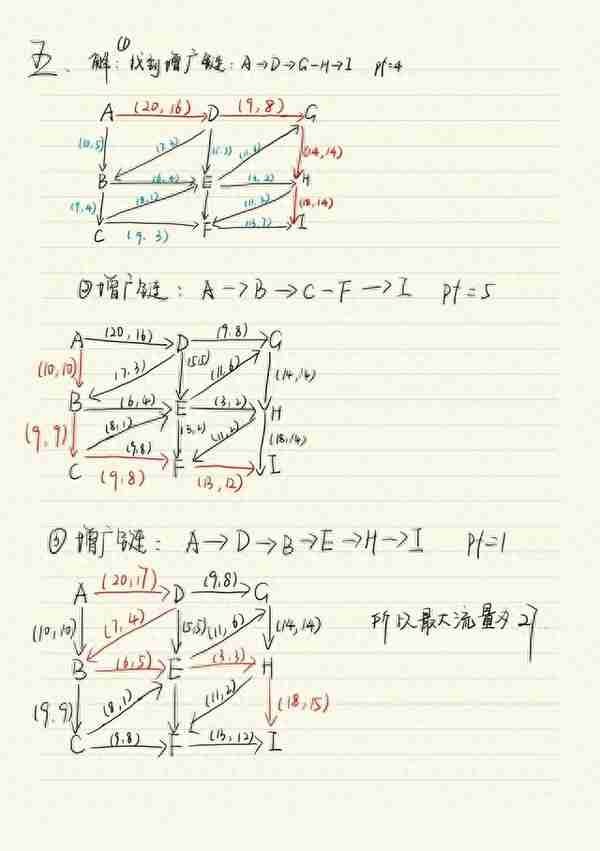 五、解：(1)找到增广链：A→D→G-H→I pf=4
A (20,16) D (9,8) G
(10,5) (7.3) (5.5) (11,6) (14,14)
B (6,4) E (3,2) H
(9,4) (8,1) (11,2) (18,14)
C (9.3) F (13,7) I
②增广链：A→B→C-F→I pf=5
A (20,16) D (9.8) G
(10,10) (7.3) (5,5) (11,6) (14,14)
B (6,4) E (3,2) H
(9,9) (8,1) (13,2) (11,2) (18,14)
C (9,8) F I
(9,8) (13,12)
③增广链：A→D→B→E→H→I pf=1
A (20,17) D (9,8) G
(10,10) (7,4) (5,5) (11,6) (14,14) 所以最大流量为27
B (6,5) E (3,3) H
(9.9) (8,1) (11,2) (18,15)
C (9,8) F (13,12) I